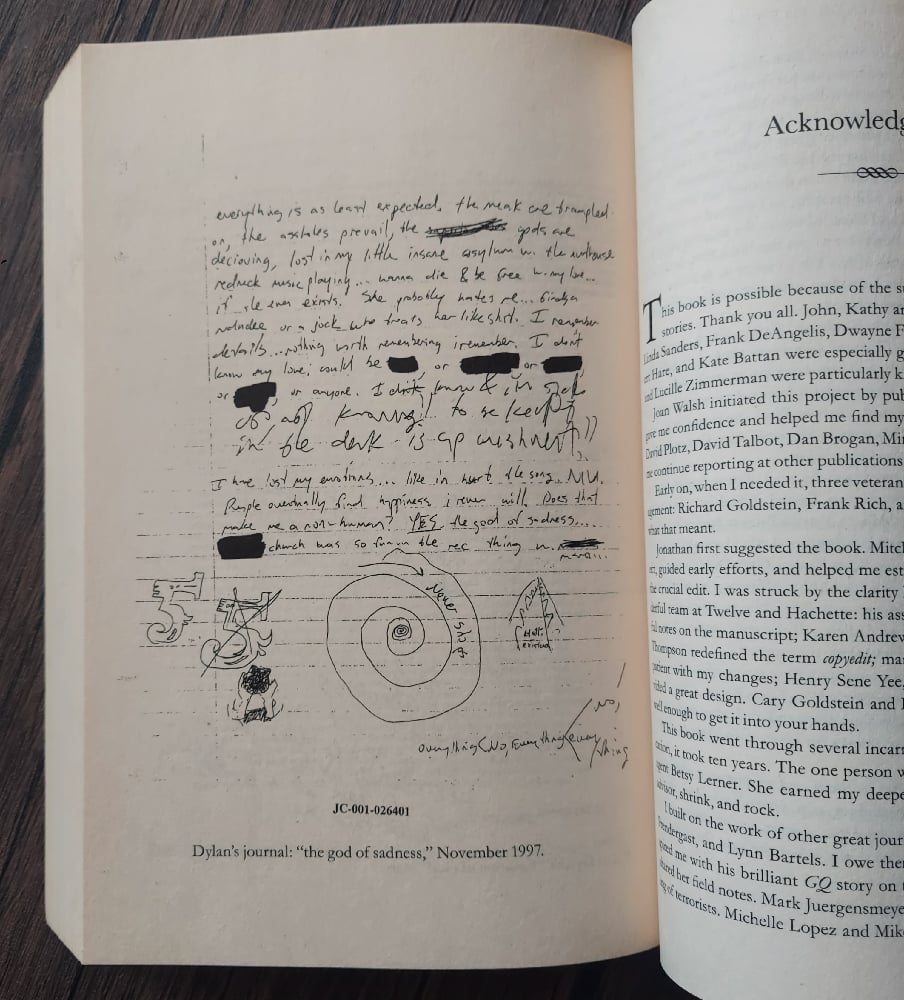 everything is as least expected. the meak are trampled
on, the assholes prevail, the gods are
decieving, lost in my little insane asylum w. the nuthouse
redneck music playing... wanna die & be free w. my love...
if she even exists. She probably hates me... finds a
redneck or a jock who treats her like shit. I remember
details... nothing worth remembering i remember. I dont
know my love; could be , or or
or or anyone. I dont know & im sick
of not knowing! to be kept
in the dark is a punishment))
I have lost my emotions... like in hurt the song. NIN.
People eventually find happiness i never will. Does that
make me a non-human? YES. the god of sadness...
church was so fun in the rec thing w.
Never stop
Halls
everything (No, Everything (every
No,
thing
JC-001-026401
Dylan's journal: "the god of sadness," November 1997.
Acknowledg
This book is possible because of the s
stories. Thank you all. John, Kathy a
Linda Sanders, Frank DeAngelis, Dwayne F
Hare, and Kate Battan were especially g
Lucille Zimmerman were particularly k
Joan Walsh initiated this project by pub
me confidence and helped me find my
David Plotz, David Talbot, Dan Brogan, Mi
continue reporting at other publications
Early on, when I needed it, three veteran
agement: Richard Goldstein, Frank Rich, a
what that meant.
Jonathan first suggested the book. Mitc
guided early efforts, and helped me est
the crucial edit. I was struck by the clarity
team at Twelve and Hachette: his ass
notes on the manuscript; Karen Andrew
Thompson redefined the term copyedit; ma
patient with my changes; Henry Sene Yee,
a great design. Cary Goldstein and
well enough to get it into your hands.
This book went through several incar
it took ten years. The one person w
agent Betsy Lerner. She earned my deepe
advisor, shrink, and rock.
I built on the work of other great jour
Prendergast, and Lynn Bartels. I owe the
me with his brilliant GQ story on
her field notes. Mark Juergensmeye
of terrorists. Michelle Lopez and Mik